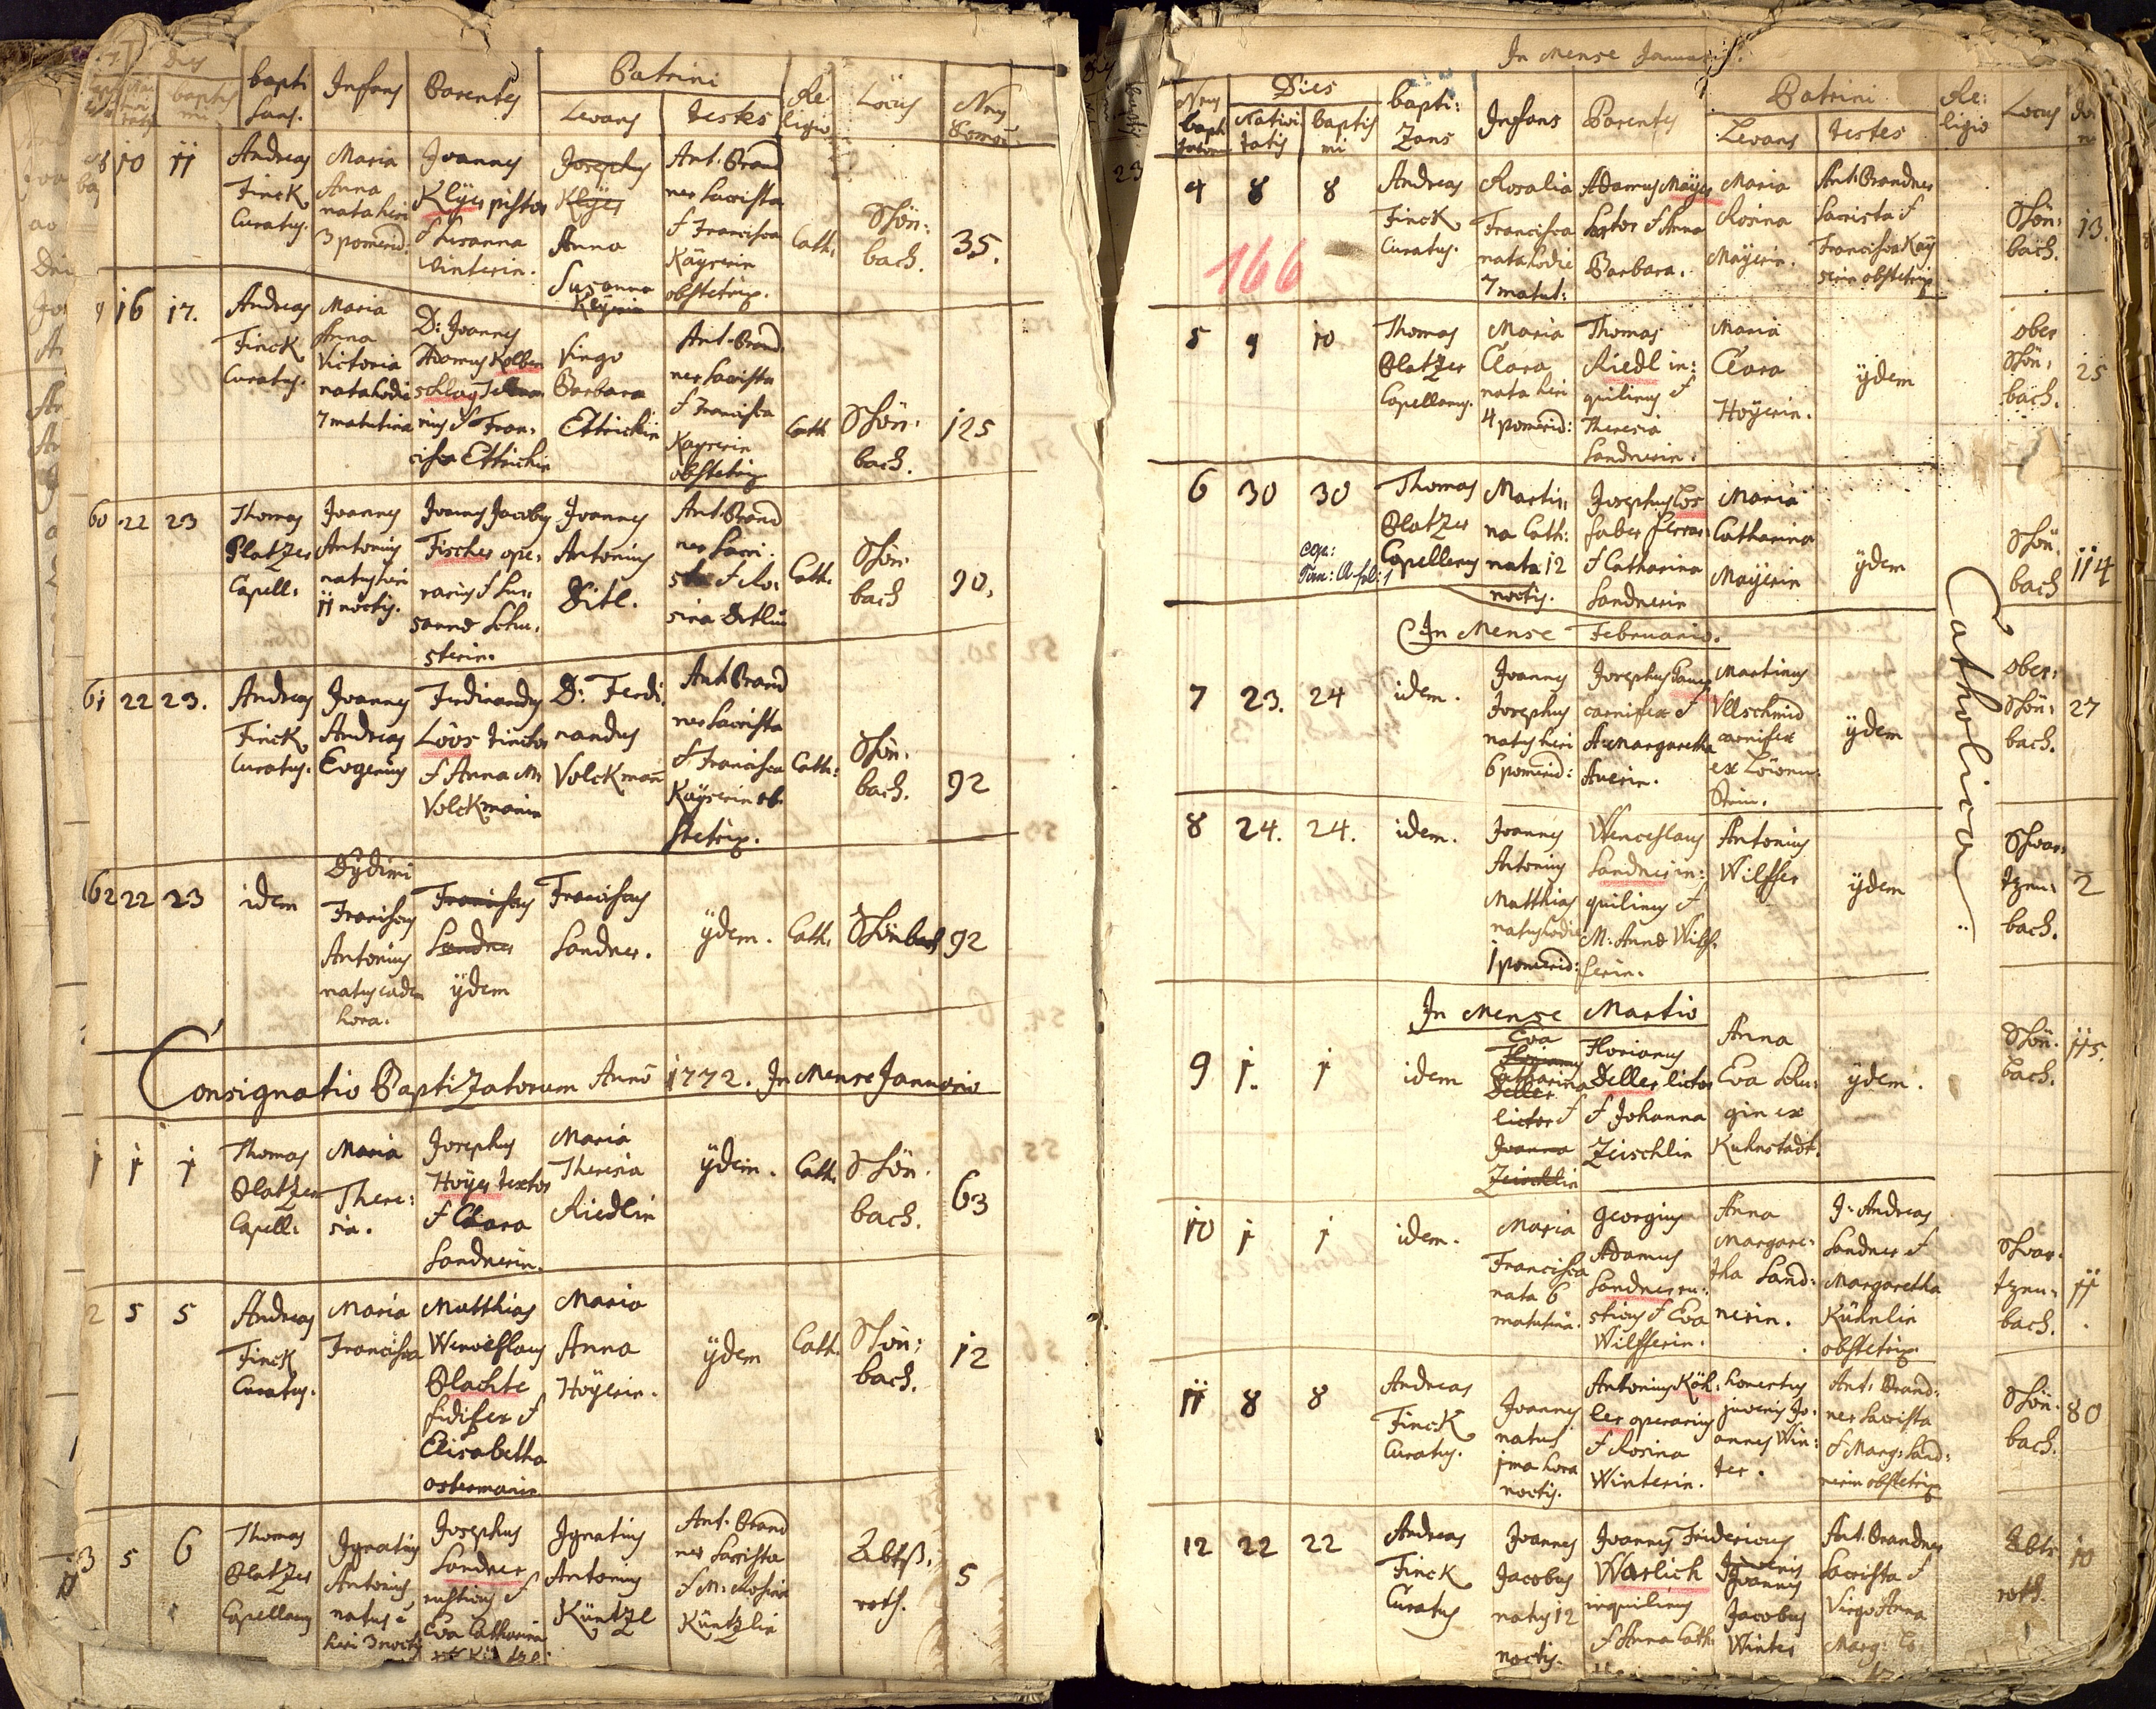 Dies
bapti
sans.
Infans
Parentes
Patrini
Levans
Testes
Re
ligio
Locus
Nrus
Domus
10
11
Andreas
Finck
Curatus.
Maria
Anna
nata heri
3 pomerid:
Joannes
Kleyer pistor
et Susanna
Winterin.
Josephus
Kleyer
Anna
Susanna
Keyerin
Ant: Brand
ner Sacrista
et Francisca
Kayserin
obstetrix.
Cath.
Schön:
bach.
35.
9
16
17.
Andreas
Finck
Curatus.
Maria
Anna
Victoria
nata hodie
7 matutina
D: Joannes
Adamus Kolben
schlag
et Fran:
cisca Ettrichin
Virgo
Barbara
Ettrichin
Ant: Brand
ner Sacrista
et Francisca
Kayserin
obstetrix
Cath
Schön:
bach.
125
60
22
23
Thomas
Platzer
Capell:
Joannes
Antonius
natus heri
11 noctis.
Joannes Jacobus
Fischer ope:
rarius et Su:
sanna Schu:
sterin.
Joannes
Antonius
Ditl.
Ant: Brand
ner Sacri:
sta et Ro:
sina Dietlin
Cath.
Schön:
bach
90.
61
22
23.
Andreas
Finck
Curatus.
Joannes
Andreas
Evgenius
Ferdinandus
Löos tinctor
et Anna M:
Volckmanin
D: Ferdi
nandus
Volckmañ
Ant: Brand
ner Sacrista
et Francisca
Kayserin ob
stetrix.
Cath:
Schön:
bach.
92
62
22
23
idem
Dydimi
Franciscus
Antonius
natus eadem
hora.
Franciscus
Sandner
ÿdem
Franciscus
Sandner.
ÿdem.
Cath.
Schönbach
92
Consignatio Baptizatorum Anno 1772. In Mense Januario
1
1
1
Thomas
Platzer
Capell:
Maria
There:
sia.
Josephus
Hoÿer textor
et Clara
Sandnerin.
Maria
Theresia
Riedlin
ÿdem.
Cath.
Schön:
bach.
63
2
5
5
Andreas
Finck
Curatus.
Maria
Francisca
Matthias
Wenceslaus
Plachte
fidifex et
Elisabetha
ostermanin
Maria
Anna
Hoÿerin.
ÿdem
Cath.
Schön:
bach.
12
3
5
6
Thomas
Platzer
Capellanus
Ignatius
Antonius
natus e
heri 3 noctis
Josephus
Sandner
rusticus et
Eva Catharina
Ignatius
Antonius
Küntzl
Ant: Brand
ner Sacrista
et M: Rosina
Küntzlin
Abts:
roth.
5
In Mense Januario.
Nrus
bapt
Dies
Nativi
tatis
baptis
mi
bapti:
Zans
Infans
Parentes
Patrini
Levans
Testes
Re:
ligio
Locus
4
8
8
Andreas
Finck
Curatus.
166
Rosalia
Francisca
nata hodie
7 matut:
Adamus Maÿer
textor et Anna
Barbara.
Maria
Rosina
Maÿerin.
Ant: Brandner
Sacrista et
Francisca Kaÿ
serin obstetrix
Schön:
bach.
13.
5
9
10
Thomas
Platzer
Capellanus.
Maria
Clara
nata heri
4 pomerid:
Thomas
Riedl in:
quilinus et
Theresia
Sandnerin.
Maria
Clara
Hoÿerin.
ÿdem
ober
Schön:
bach.
25
6
30
30
Thomas
Platzer
Capellanus
Martin:
na Cath:
nata 12
noctis.
Josephus Los
faber ferrar:
et Catharina
Sandnerin
Maria
Catharina
Maÿerin
ÿdem
Schön:
bach
114
In Mense Februario.
7
23.
24
idem.
Joannes
Josephus
natus heri
6 pomerid:
Josephus
carnifex et
A: Margaretha
Auerin.
Martinus
Ullschmid
carnifex
ex Löwen:
Stein.
ÿdem
ober:
Schön:
bach.
27
8
24.
24.
idem.
Joannes
Antonius
Matthias
natus hodie
1 pomerid:
Wenceslaus
Sandner in:
quilinus et
M: Anna Wilf:
ferin.
Antonius
Wilffer
ÿdem
Schwar:
tzen:
bach.
2
Catholica
In Mense Martio
9
1.
1
idem
Eva
Florianus
Catharina
Deller
lictor et
Joanna
Zeischlin
Florianus
Deller lictor
et Johanna
Zeischlin
Anna
Eva Schu:
gin ex
Kuhnstadt.
ÿdem.
Schön:
bach.
115.
10
1
1
idem.
Maria
Francisca
nata 6
matutina.
Georgius
Adamus
Sandner ru:
sticus et Eva
Wilfferin.
Anna
Margare:
tha Sand:
nerin.
J: Andreas
Sandner et
Margaretha
Kühnlin
obstetrix
Schwar:
tzen:
bach.
11
11
8
8
Andreas
Finck
Curatus.
Joannes
natus
1ma hora
noctis.
Antonius Köh:
ler operarius
et Rosina
Winterin.
honestus
juvenis Jo:
annes Win:
ter.
Ant: Brand:
ner Sacrista
et Marg: Sand:
nerin obstetrix
Schön:
bach.
80
12
22
22
Andreas
Finck
Curatus
Joannes
Jacobus
natus 12
noctis.
Joannes Fridericus
Warlich
inquilinus
et Anna Cath:
Juvenis
Joannes
Jacobus
Winter
Ant: Brandner
Sacrista et
Virgo Anna
Marg:
Abts
roth.
10